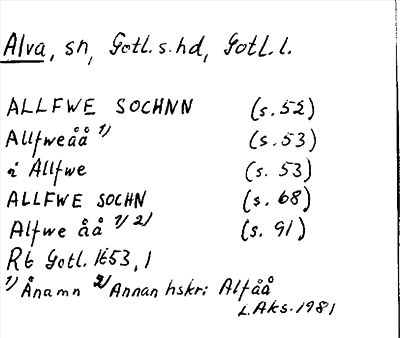 Alva, sn, Gotl. s. hd, Gotl. l.
ALLFWE SOCHNN (s. 52)
Allfweåå 1) (s. 53)
i Allfwe (s. 53)
ALLFWE SOCHN (s. 68)
Alfwe åå 1) 2) (s. 91)
Rb Gotl. 1653, 1
1) Ånamn 2) Annan hskr: Alfåå
L. Aks. 1981